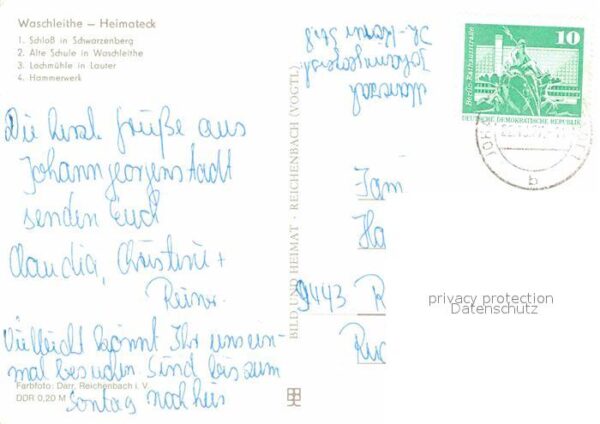 Waschleithe – Heimateck
1. Schloß in Schwarzenberg
2. Alte Schule in Waschleithe
3. Lachmühle in Lauter
4. Hammerwerk
Die herzl. Grüße aus
Johanngeorgenstadt
senden Euch
Claudia, Christine +
Reiner.
Vielleicht könnt Ihr uns ein-
mal besuchen. Sind bis zum
Sontag noch hier
Farbfoto: Darr, Reichenbach i. V.
DDR 0,20 M
BILD UND HEIMAT · REICHENBACH (VOGTL)
Johanngeorgenst.
Fam
Ha
9443 R
privacy protection
Datenschutz
10
Berlin, Rathausstraße
DEUTSCHE DEMOKRATISCHE REPUBLIK
b